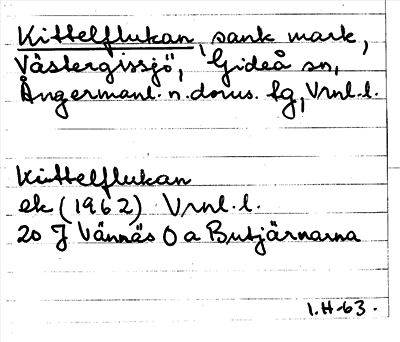 Kittelflukan, sank mark,
Västergissjö, Gideå sn,
Ångermanl. n. doms. fg, Vrnl. l.
Kittelflukan
ek (1962) Vrnl. l.
20 J Vännäs O a Butjärnarna
I.H-63.